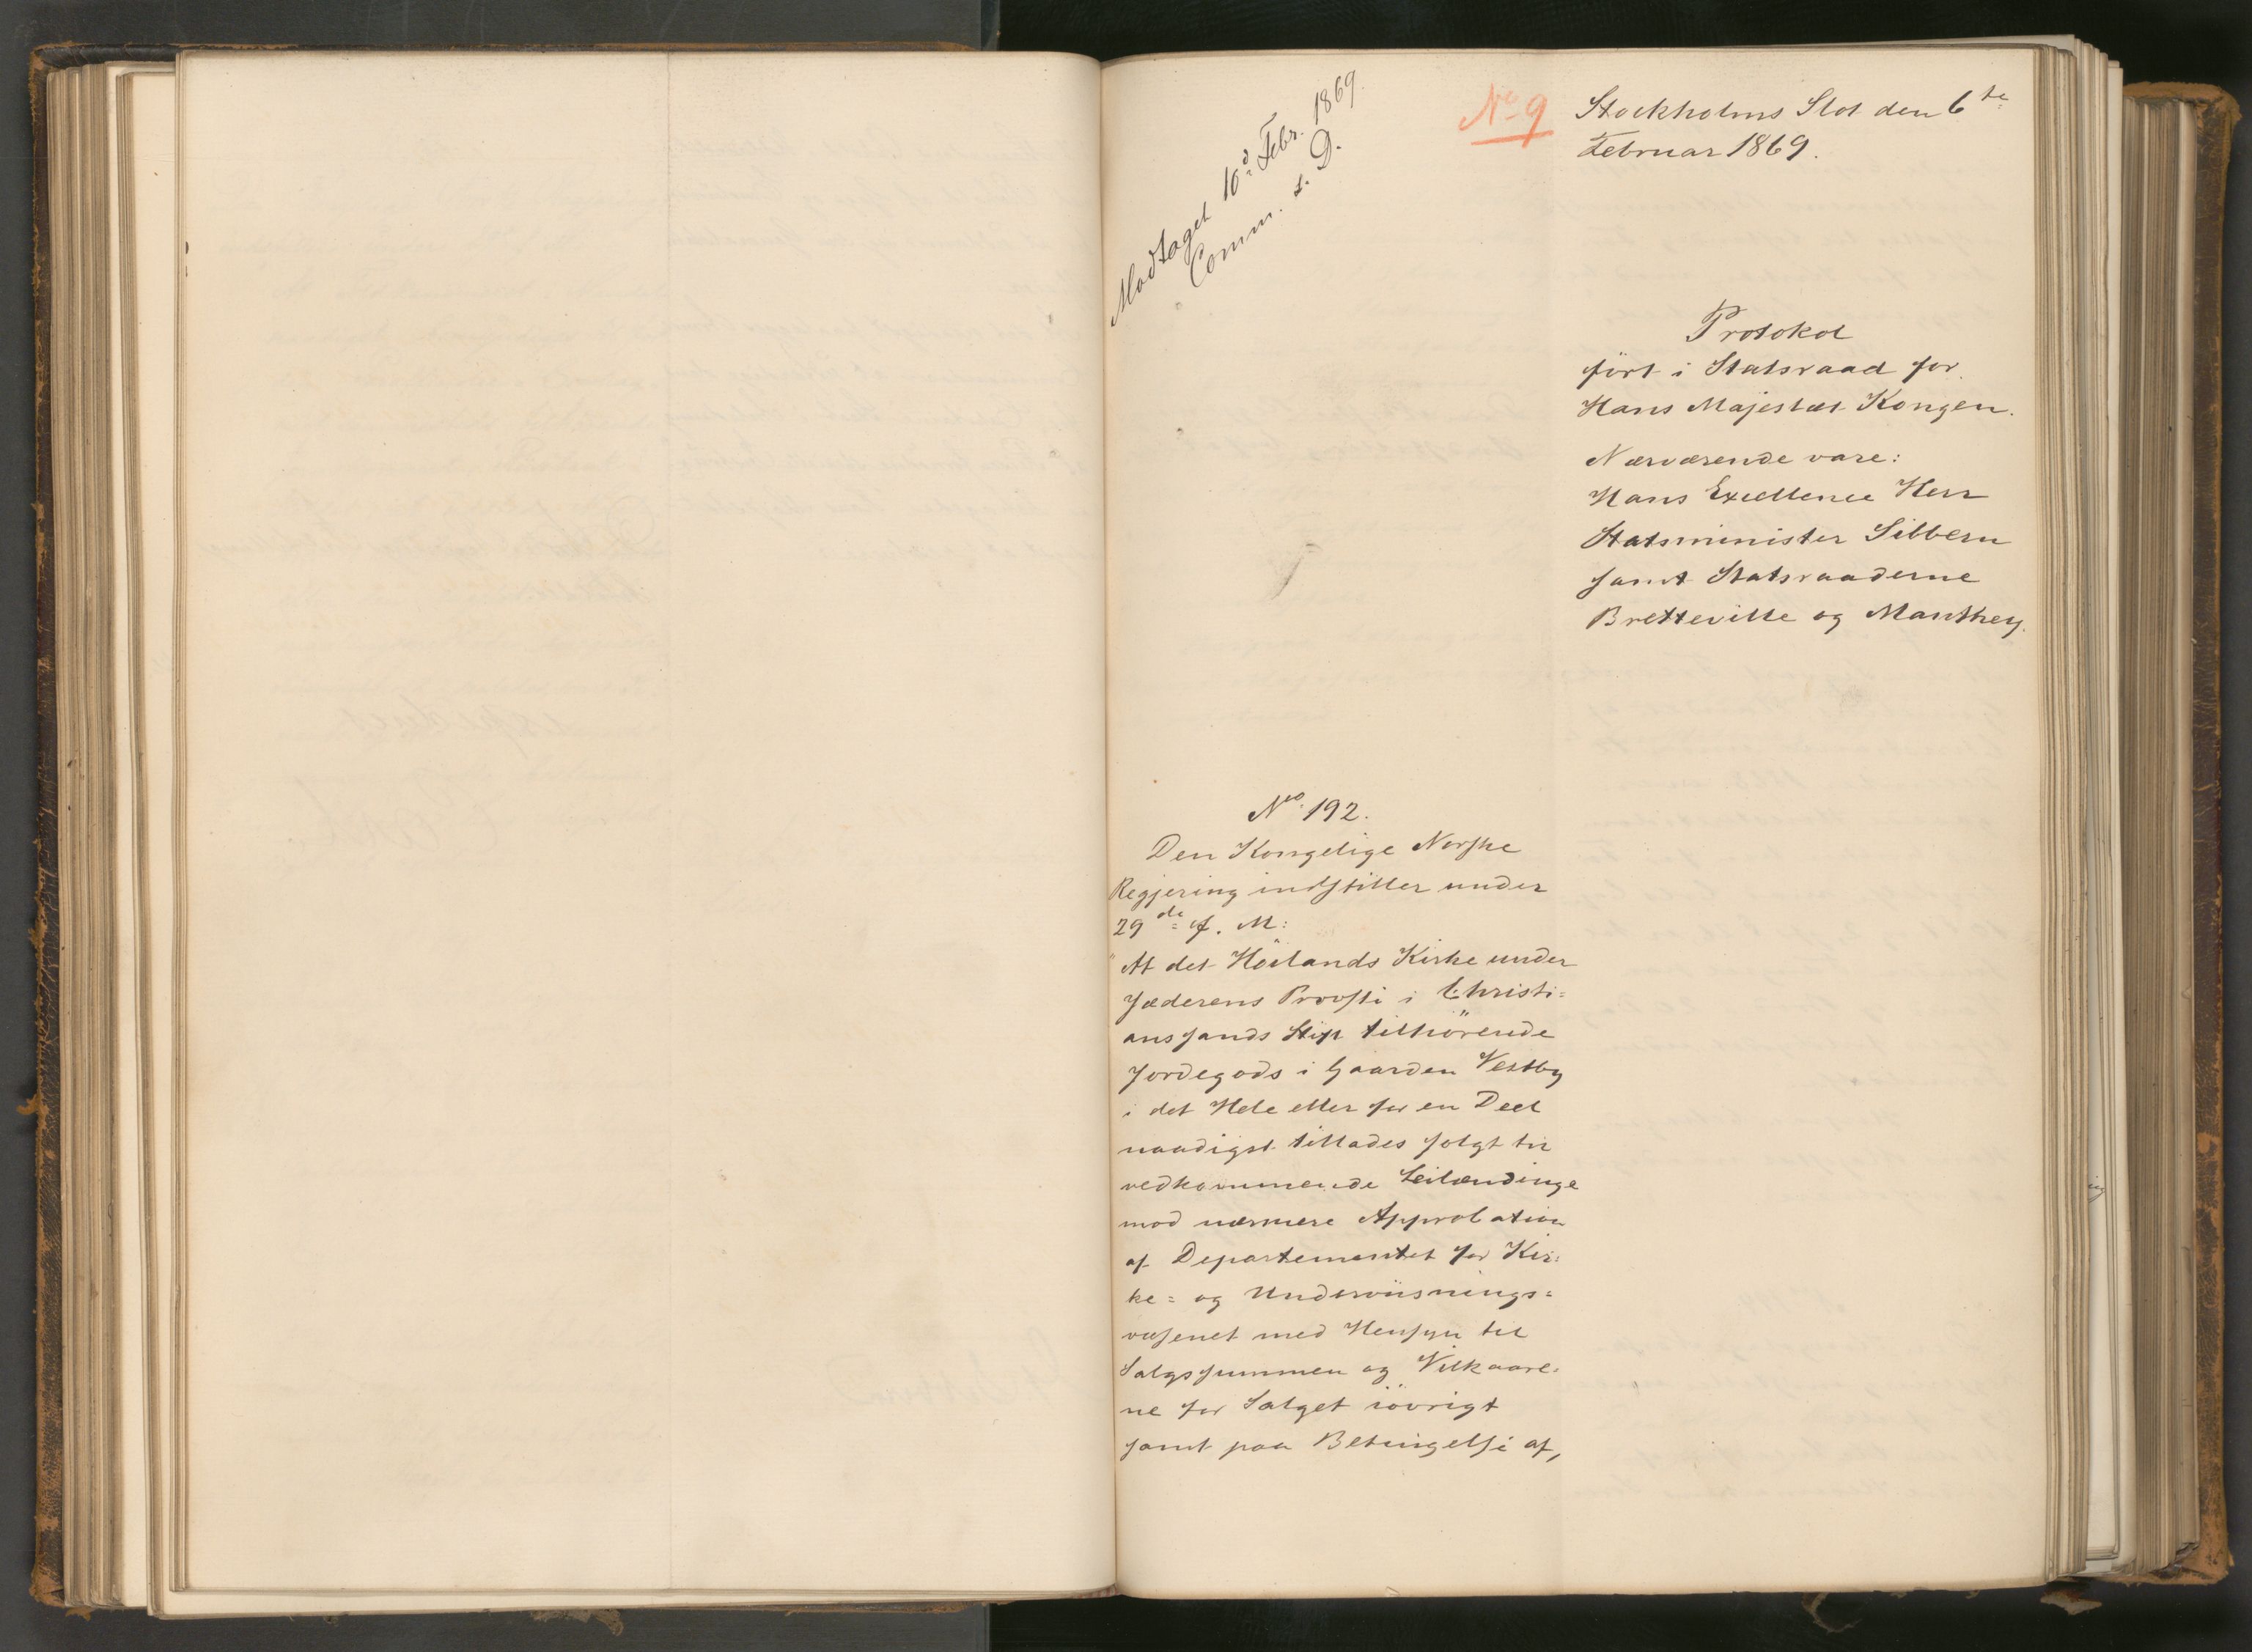 Modtaget 10d Febr. 1869.
Comm. s. D.
No 9
Stockholms Slot den 6te
Februar 1869.
Protokol
ført i Statsraad for
Hans Majestæt Kongen.
Nærværende vare:
Hans Excellence Herr
Statsminister Sibbern
samt Statsraaderne
Bretteville og Manthey.
No 192.
Den Kongelige Norske
Regjering indstiller under
29de f. M:
"At det Höilands Kirke under
Jæderens Provsti i Christi=
anssands Stift tilhörende
Jordegods i Gaarden Vestby
i det Hele eller for en Deel
naadigst tillades solgt til
vedkommende Leilændinge
mod nærmere Approbation
af Departementet for Kir=
ke= og Underviisnings=
væsenet med Hensyn til
Salgssummen og Vilkaare=
ne for Salget iövrigt
samt paa Betingelse af,